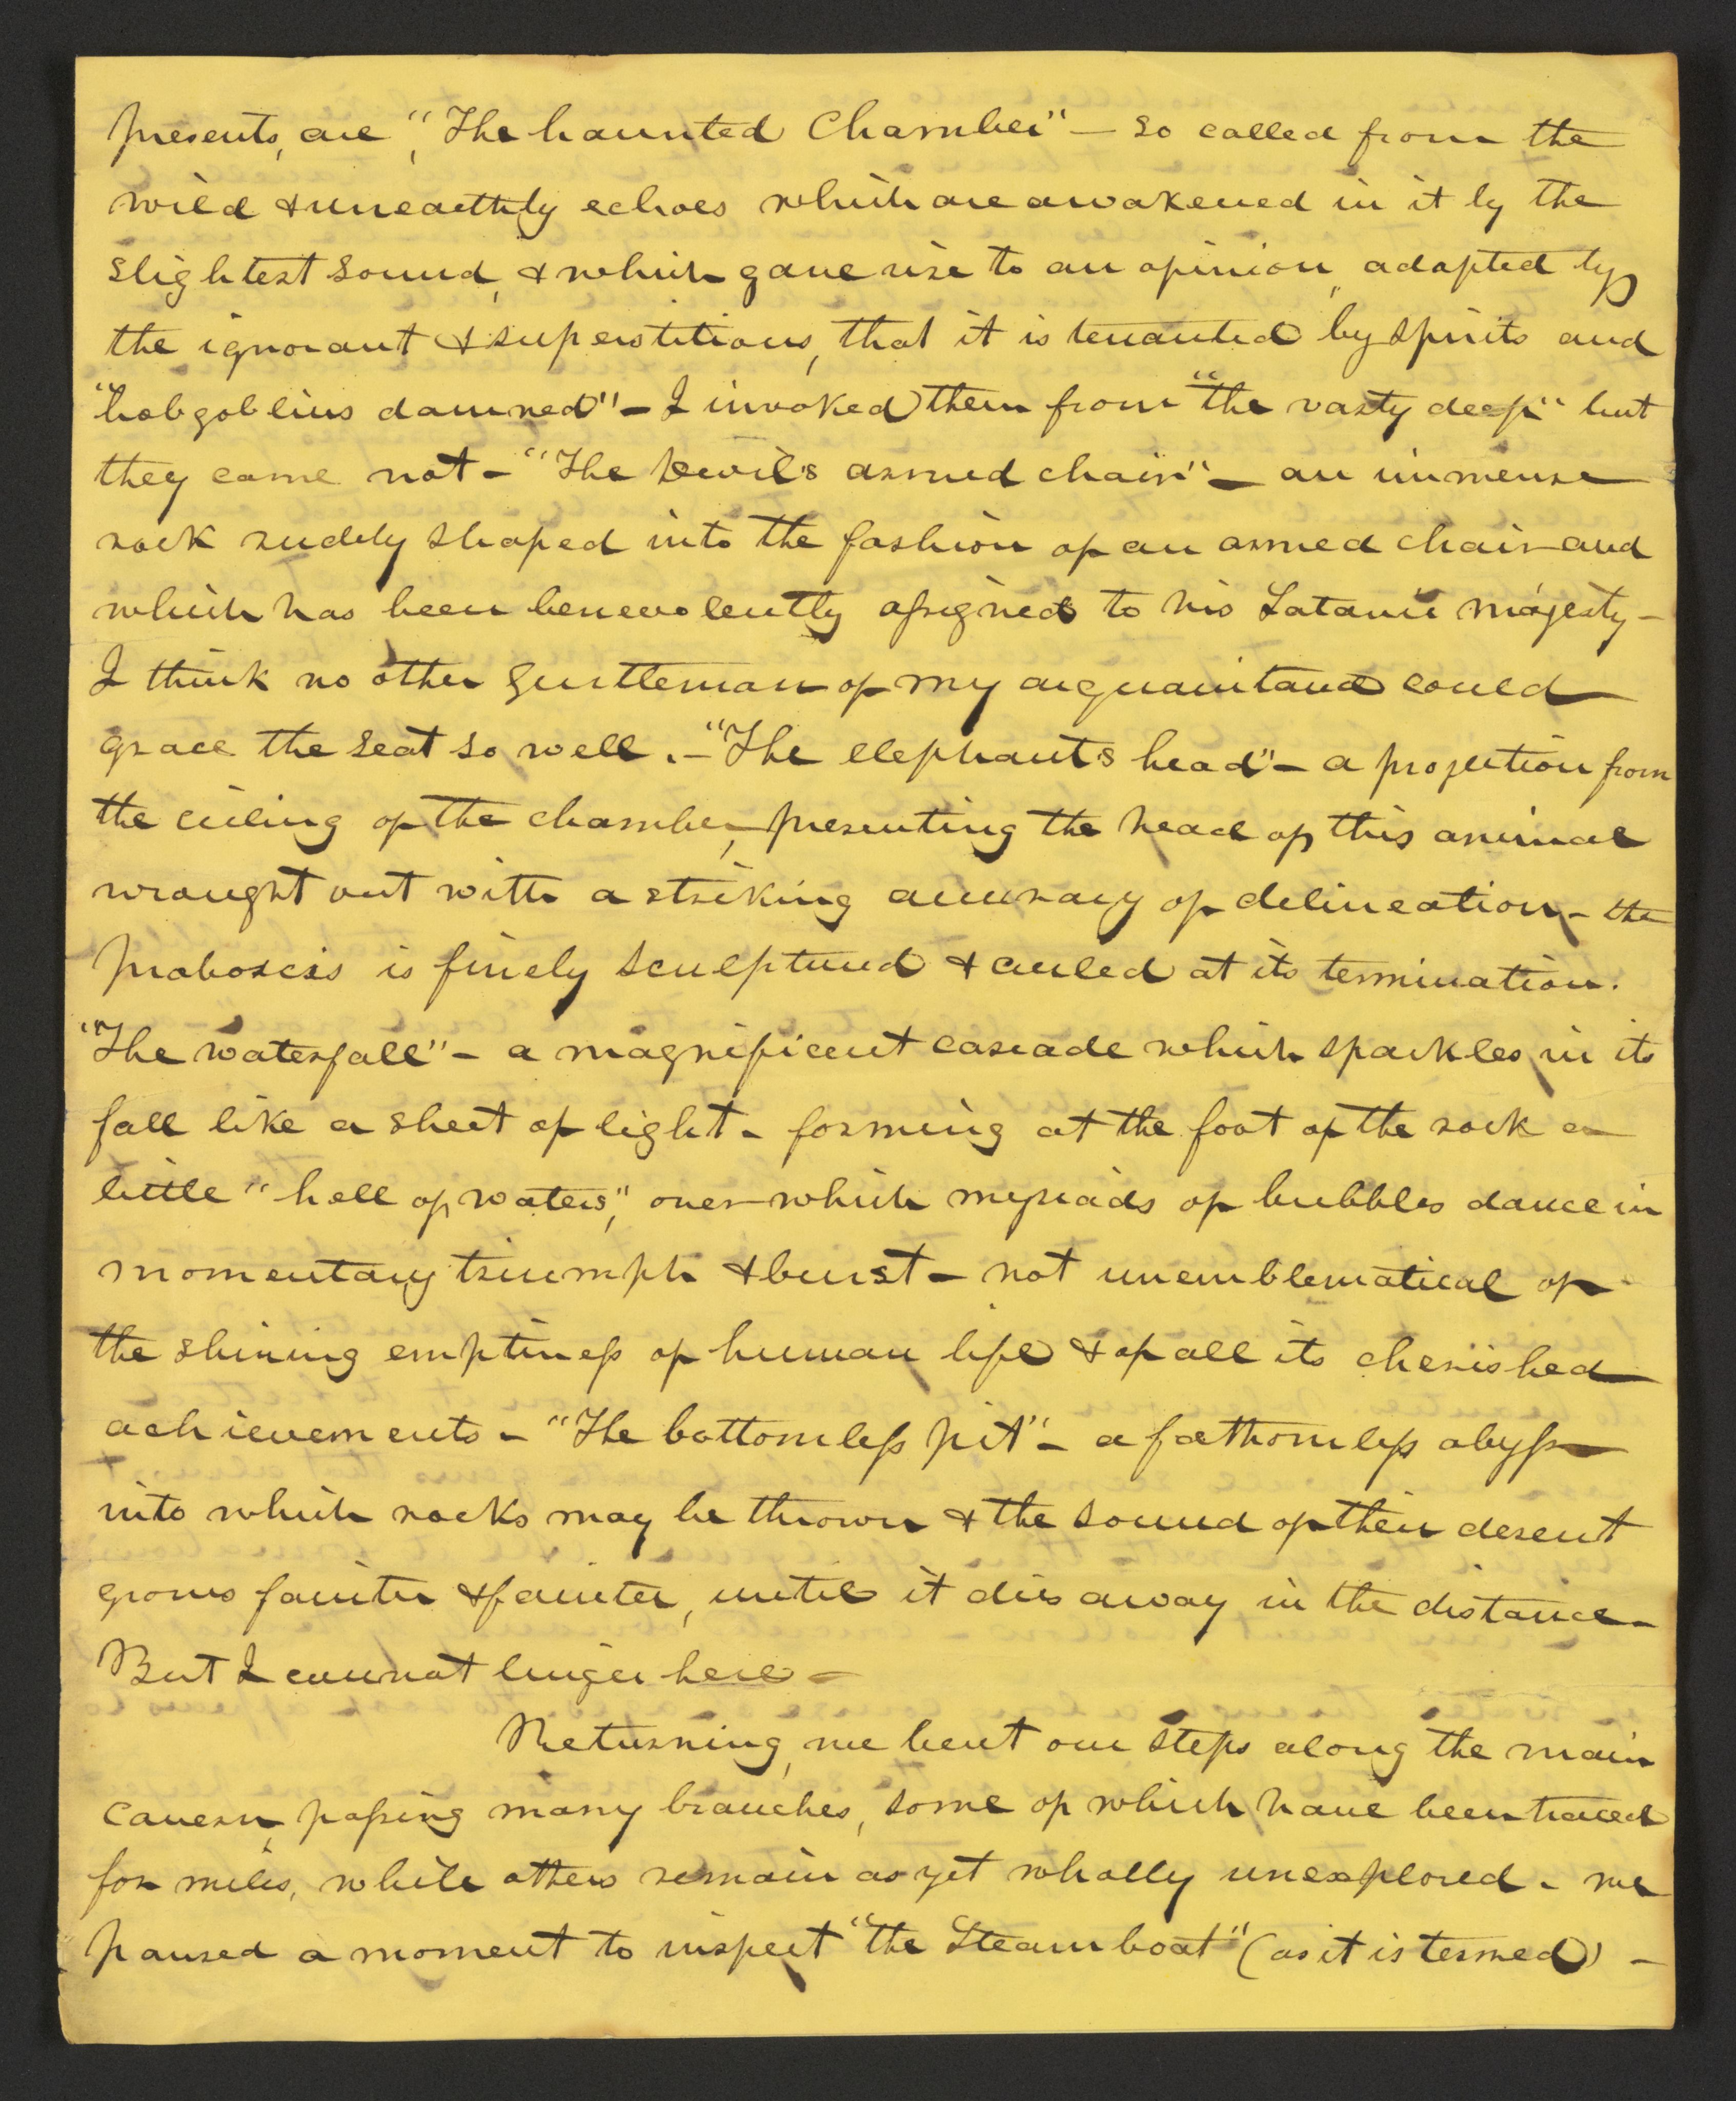 presents, are, "The haunted Chamber" — so called from the
wild & unearthly echoes which are awakened in it by the
slightest sound, & which gave rise to an opinion, adopted by
the ignorant & superstitious, that it is tenanted by spirits and
"hobgoblins damned" – I invoked them from "the vasty deep" but
they came not – "The Devil's armed chair" – an immense
rock rudely shaped into the fashion of an armed chair and
which has been benevolently assigned to his Satanic majesty –
I think no other gentleman of my acquaintance could
grace the seat so well. – "The elephant's head" – a projection from
the ceiling of the chamber, presenting the head of this animal
wrought out with a striking accuracy of delineation, – the
proboscis is finely sculptured & curled at its termination.
"The waterfall" – a magnificent cascade which sparkles in its
fall like a sheet of light – forming at the foot of the rock a
little "hell of waters," over which myriads of bubbles dance in
momentary triumph & burst – not unemblematical of
the shining emptiness of human life & of all its cherished
achievements – "The bottomless pit" – a fathomless abyss
into which rocks may be thrown & the sound of their descent
grows fainter & fainter, until it dies away in the distance –
But I cannot linger here –
Returning, we bent our steps along the main
cavern, passing many branches, some of which have been traced
for miles, while others remain as yet wholly unexplored – we
paused a moment to inspect "the Steamboat" (as it is termed) –